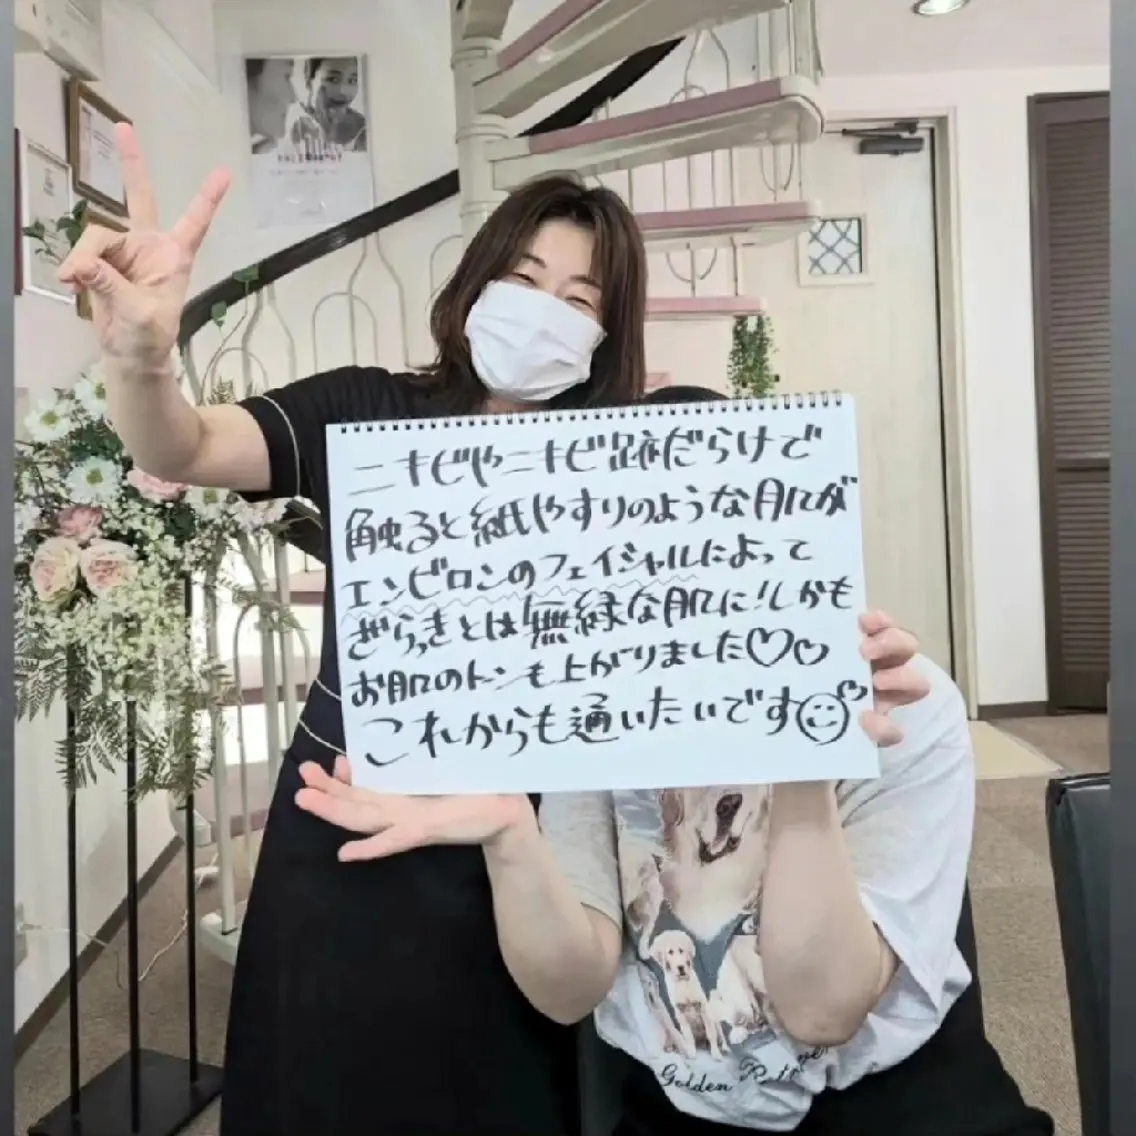 ニキビやニキビ跡だらけで
触ると紙やすりのような肌が
エンビロンのフェイシャルによって
ぎらっきとは無縁な肌に！しかも
お肌のトーンも上がりました♡♡
これからも通いたいです
Golden Retriever